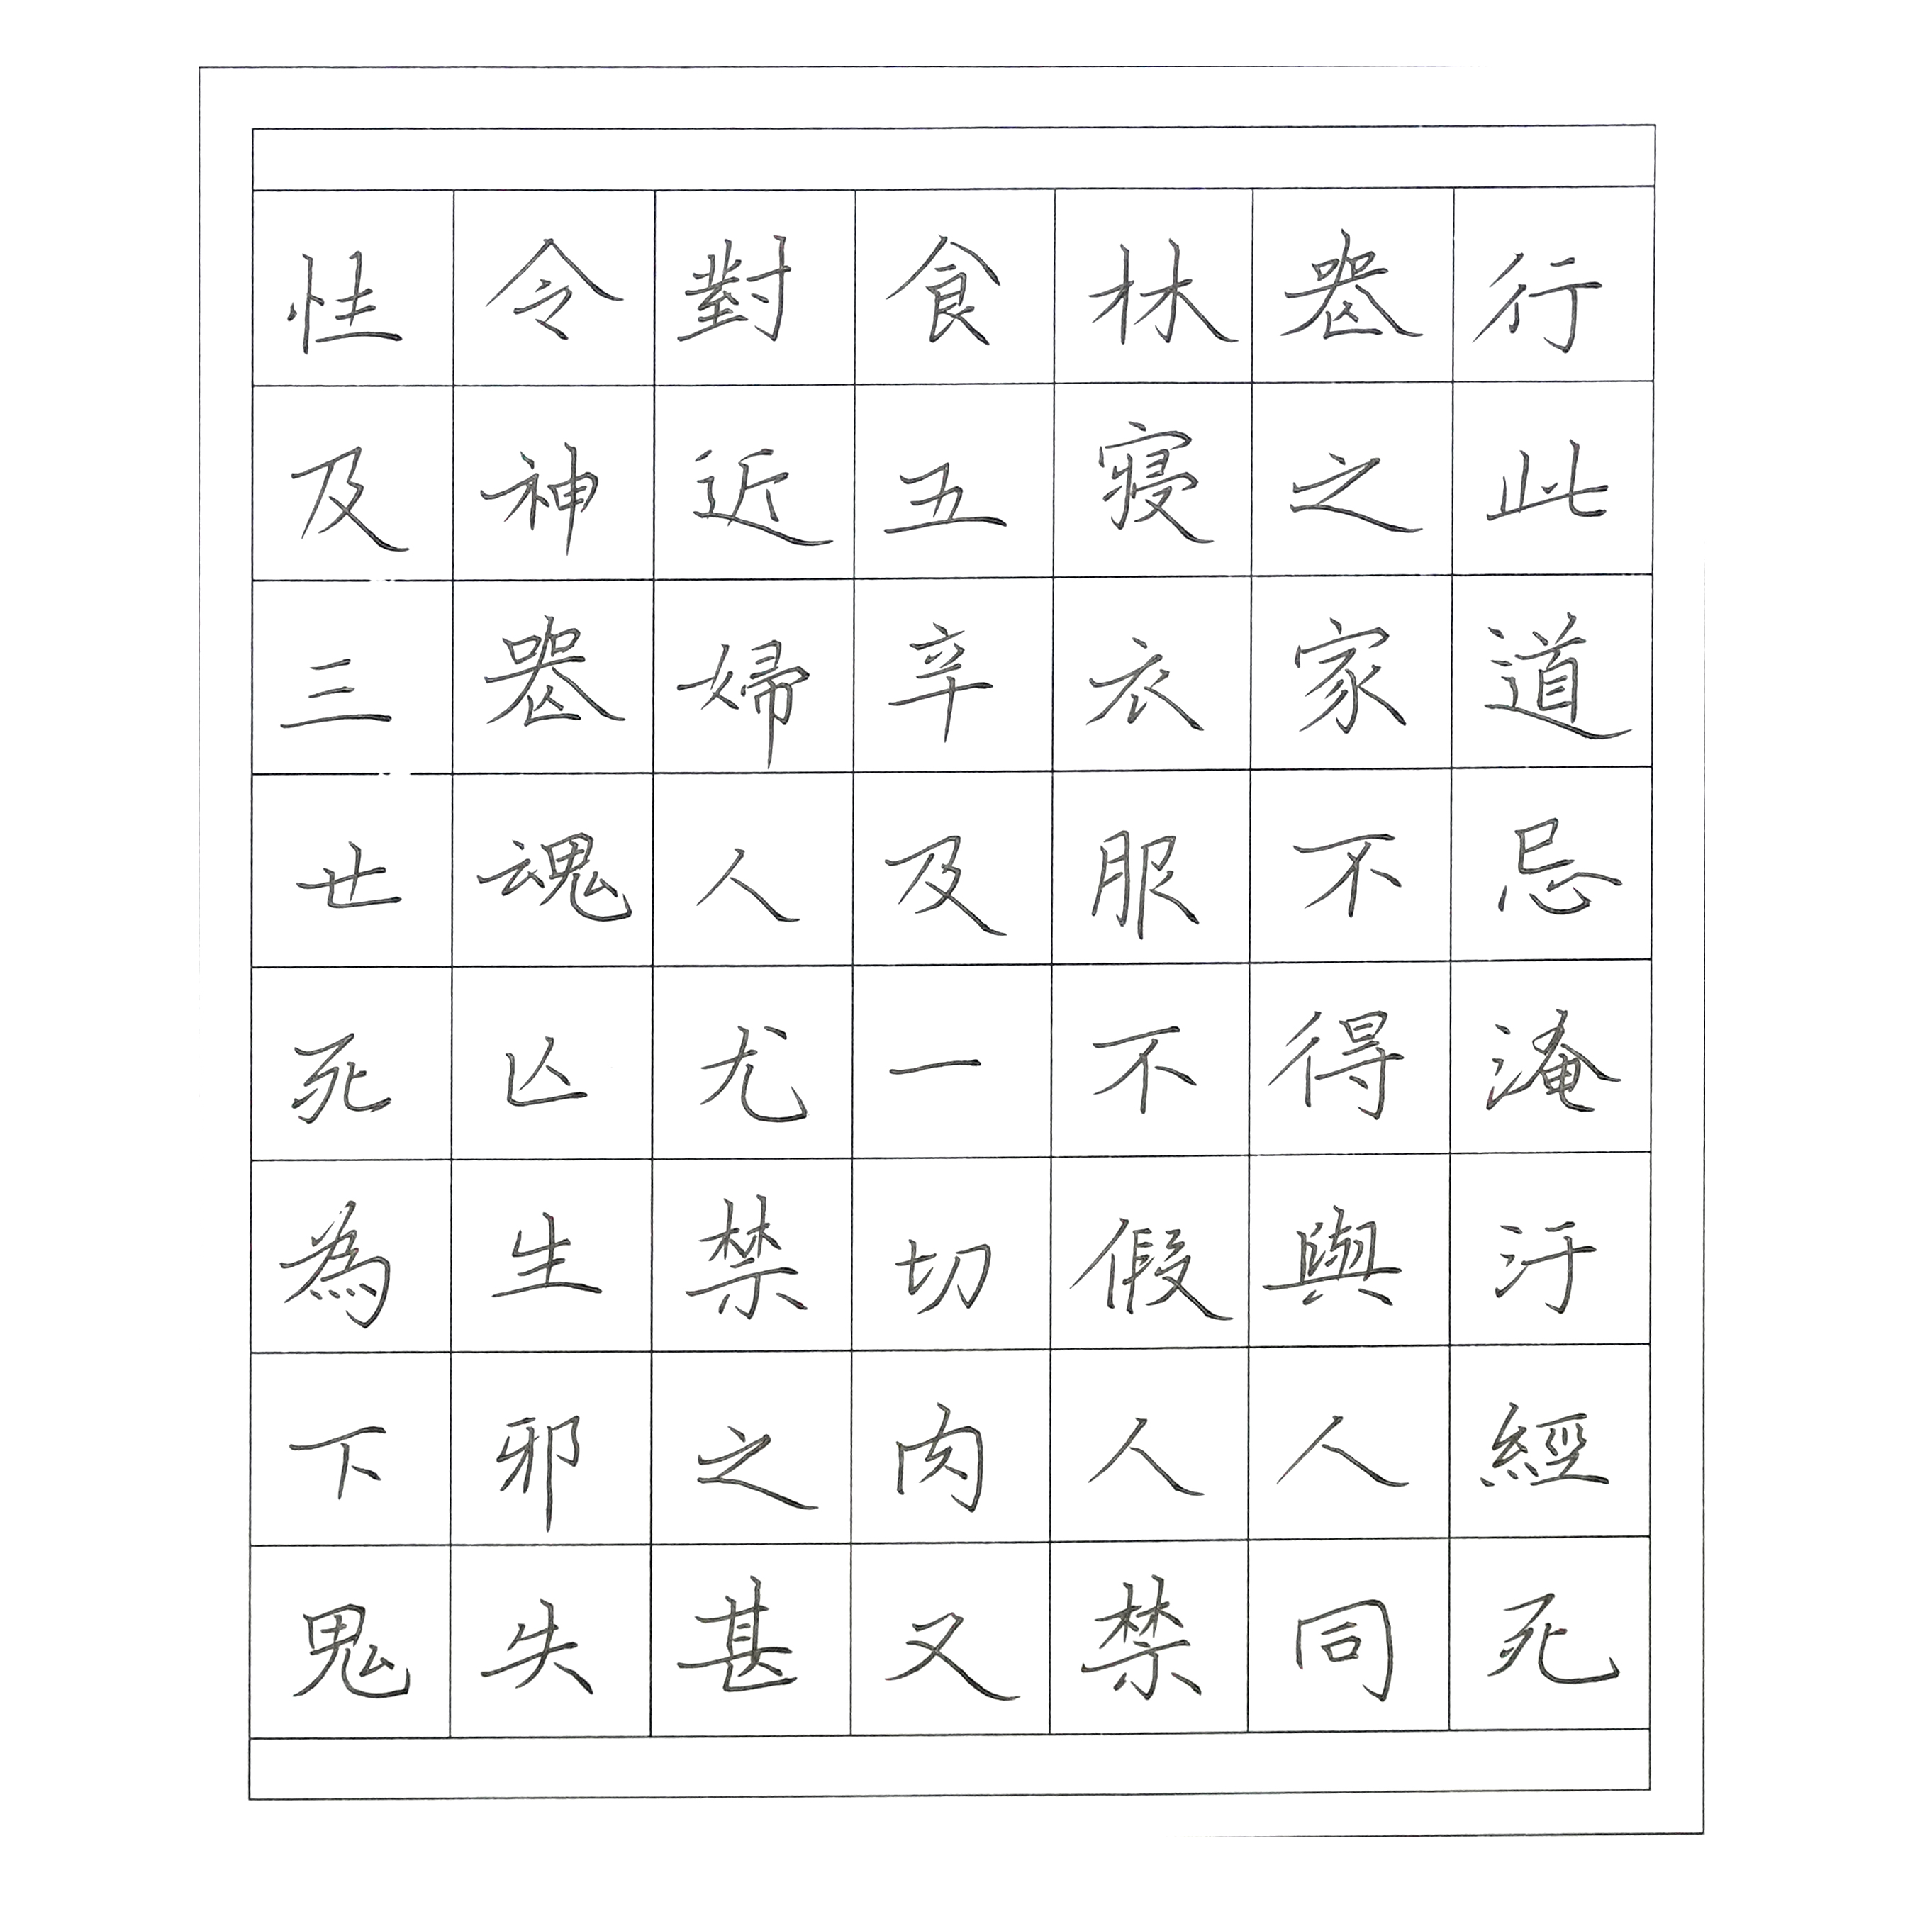 行此道忌淹汙經死
喪之家不得與人同
林寢衣服不假人禁
食五辛及一切肉又
對近婦人尤禁之甚
令神喪魂亾生邪失
性及三世死為下鬼